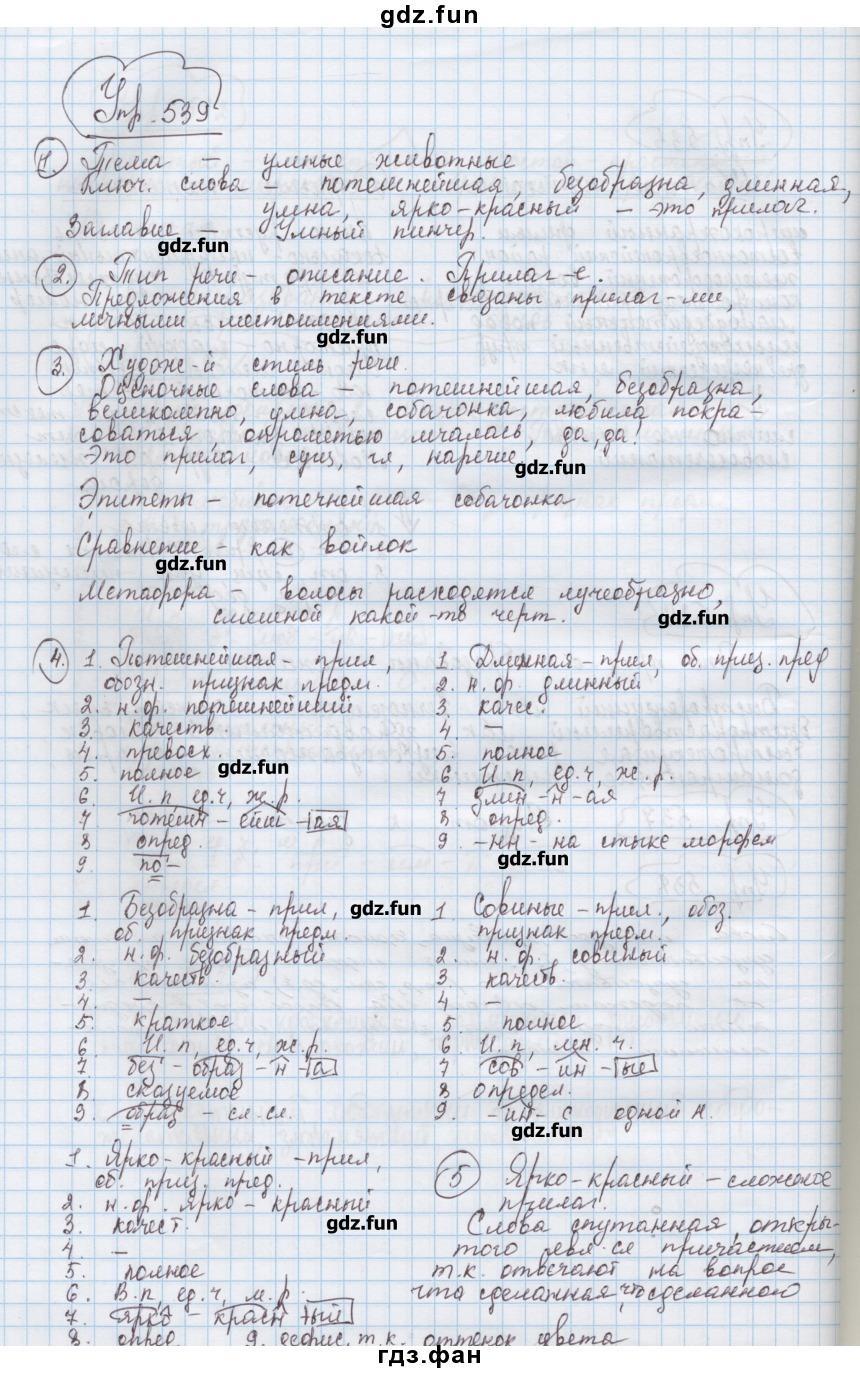 gdz.fun
Упр. 539
1. Тема – умные животные
Ключ. слова – потешнейшая, безобразна, длинная,
умна, ярко-красный – это прилаг.
Заглавие – Умный пинчер.
gdz.fun
2. Тип речи – описание. Прилаг-е.
Предложения в тексте связаны прилаг-ми,
личными местоимениями.
gdz.fun
3. Худож-й стиль речи.
Оценочные слова – потешнейшая, безобразна,
великолепно, умна, собачонка, любила покра-
соваться, опрометью мчалась, да, да!
Это прилаг, сущ, гл, наречие.
gdz.fun
Эпитеты – потечнейшая собачонка
Сравнение – как войлок
gdz.fun
Метафора – волосы расходятся лучеобразно,
смешной какой-то черт.
gdz.fun
4. 1. Потешнейшая – прил,
обозн. признак предм.
2. н.ф. потешнейший
3. качеств.
4. превосх.
5. полное
gdz.fun
6. И.п, ед.ч, ж.р.
7 потешн – ейш – ая
8 опред.
9. по –
1. Длинная – прил, об. приз. пред
2. н.ф. длинный
3. качес.
4. –
5. полное
6 И.п, ед.ч, ж.р.
7 длин – н – ая
8. опред.
9. –нн – на стыке морфем
gdz.fun
1. Безобразна – прил,
об. признак предм.
gdz.fun
2. н.ф. безобразный
3 качеств.
4. –
5. краткое
6 И.п, ед.ч, ж.р.
7 без – образ – н – а
8 сказуемое
9. образ – сл.сл.
1 Совиные – прил., обоз.
признак предм.
2. н.ф. совиный
3 качеств.
4 –
5. полное
6. И.п, мн.ч.
7 сов – ин – ые
8 определ.
9. –ин– с одной н.
gdz.fun
1. Ярко-красный – прил,
об. приз. пред.
2. н.ф. ярко-красный
3. качест.
gdz.fun
4. –
5. полное
6. В.п, ед.ч, м.р.
7. ярко – красн – ый
8. опред. 9. дефис, т.к. оттенок цвета
5 Ярко-красный – сложное
прилаг.
Слова спутанная, откры-
того явл-ся причастием,
т.к. отвечают на вопрос
что сделанная, что сделанного
гдз.фан